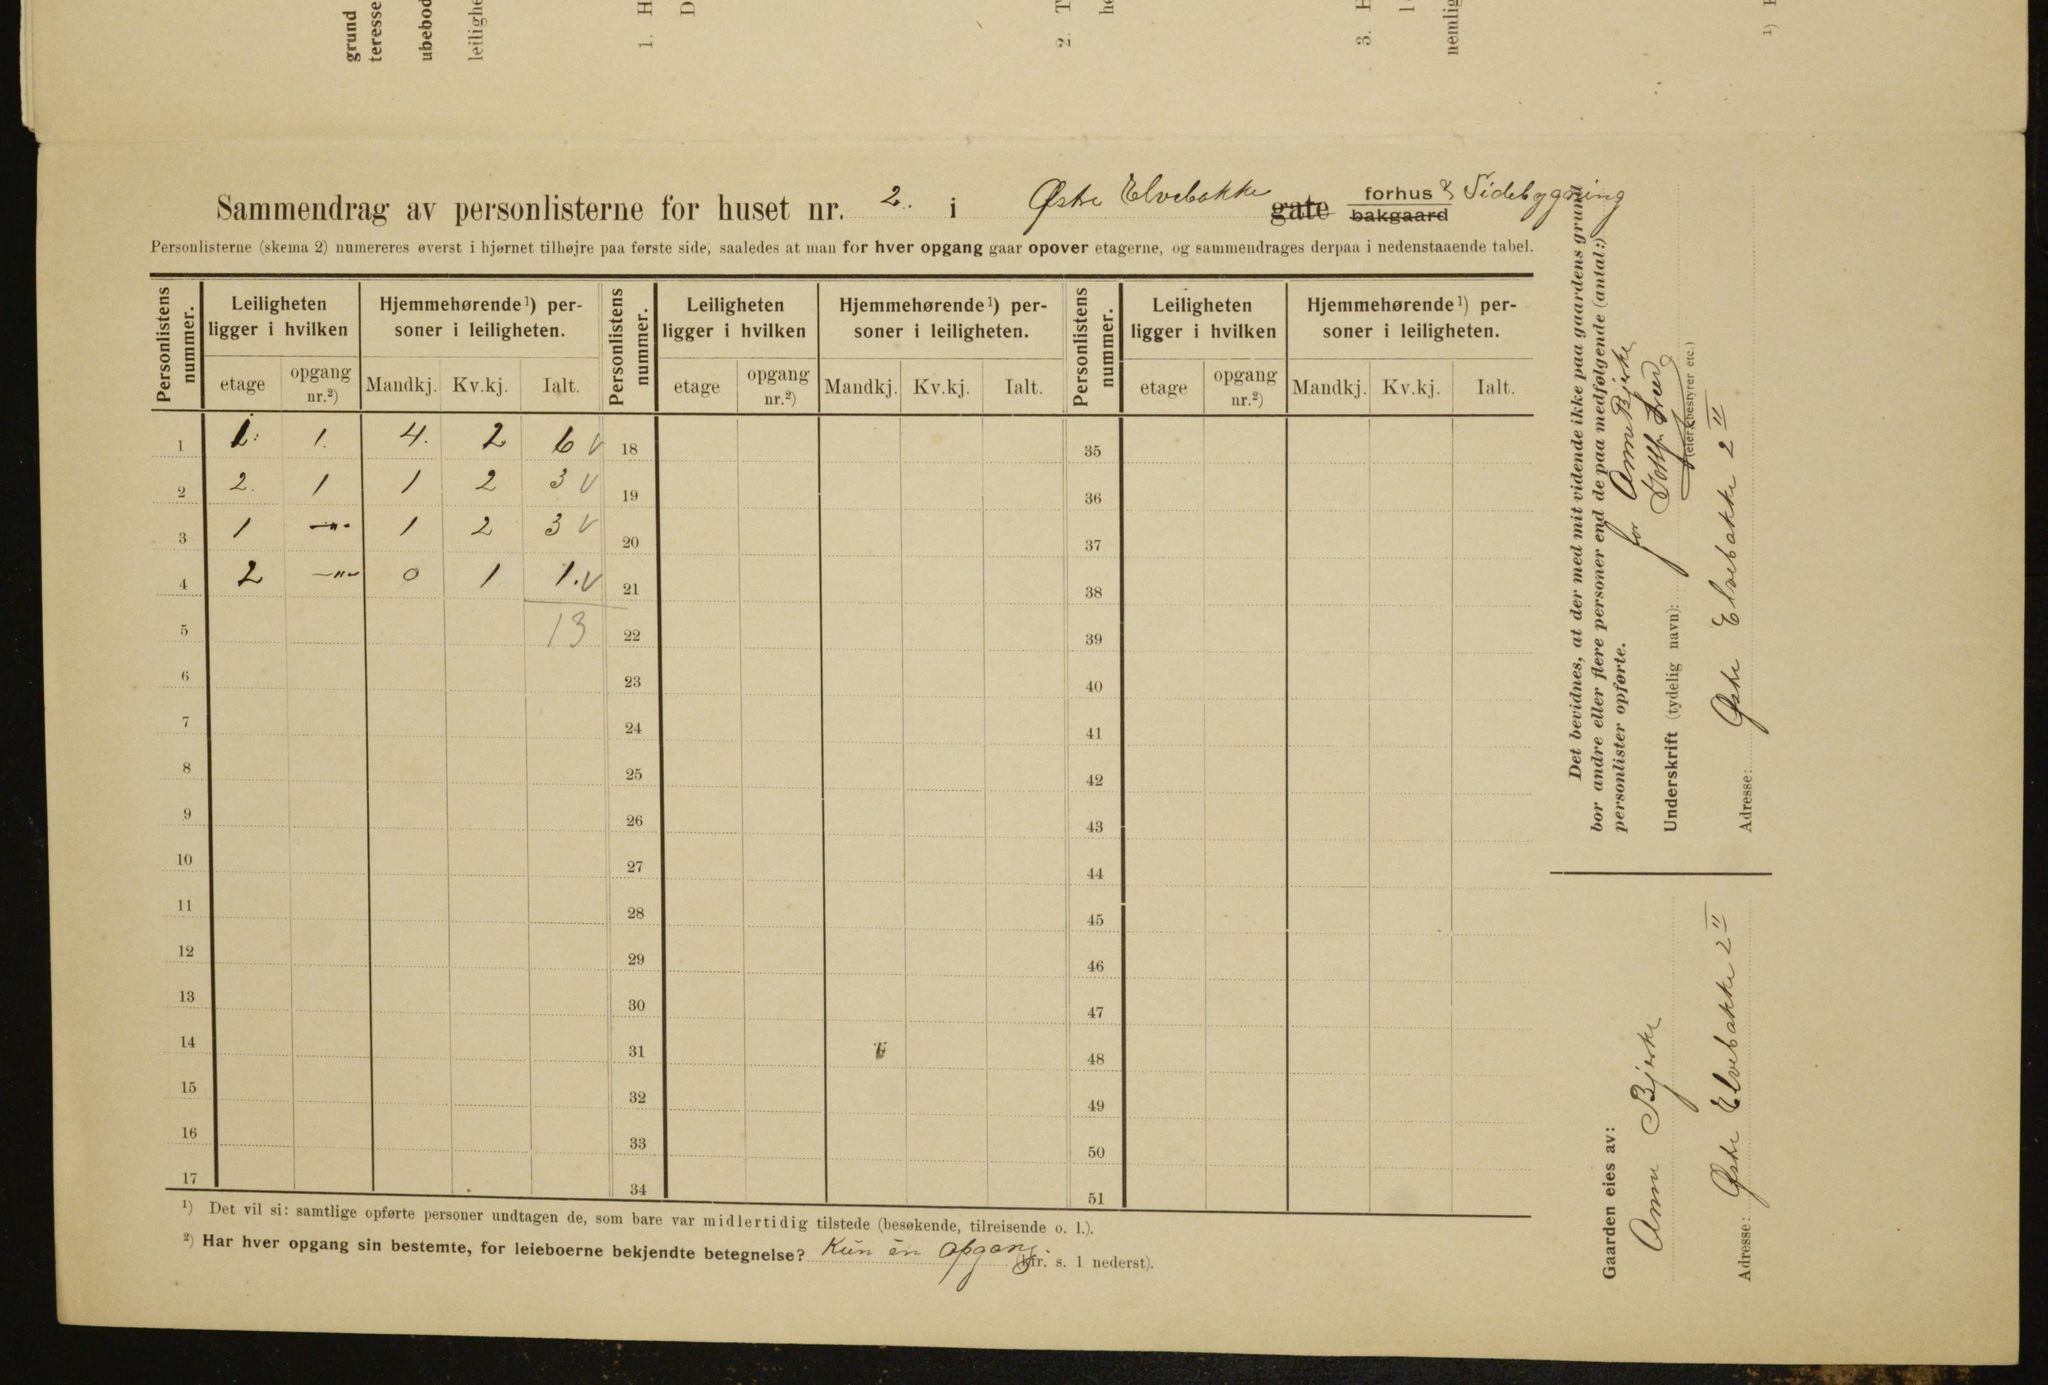 grund
teresse
ubebod
leilighe
1. H
D
2. T
he
3. H
nemlig
1)
Sammendrag av personlisterne for huset nr. 2. i Østre Elvebakke gate forhus & Sidebygning
bakgaard
Personlisterne (skema 2) numereres øverst i hjørnet tilhøjre paa første side, saaledes at man for hver opgang gaar opover etagerne, og sammendrages derpaa i nedenstaaende tabel.
Personlistens nummer. Leiligheten ligger i hvilken Hjemmehørende ¹) personer i leiligheten. Personlistens nummer. Leiligheten ligger i hvilken Hjemmehørende ¹) personer i leiligheten. Personlistens nummer. Leiligheten ligger i hvilken Hjemmehørende ¹) personer i leiligheten.
etage opgang nr.²) Mandkj. Kv.kj. Ialt. etage opgang nr.²) Mandkj. Kv.kj. Ialt. etage opgang nr.²) Mandkj. Kv.kj. Ialt.
1 1. 1. 4. 2 6 v 18 35
2 2. 1 1 2 3 v 19 36
3 1 –"– 1 2 3 v 20 37
4 2 –"– 0 1 1. v 21 38
5 13 22 39
6 23 40
7 24 41
8 25 42
9 26 43
10 27 44
11 28 45
12 29 46
13 30 47
14 31 48
15 32 49
16 33 50
17 34 51
¹) Det vil si: samtlige opførte personer undtagen de, som bare var midlertidig tilstede (besøkende, tilreisende o. l.).
²) Har hver opgang sin bestemte, for leieboerne bekjendte betegnelse? Kun èn opgang. (kfr. s. 1 nederst).
Det bevidnes, at der med mit vidende ikke paa gaardens grund
bor andre eller flere personer end de paa medfølgende (antal:)
personlister opførte.
for Anne Bjerke
Underskrift (tydelig navn):
(eier, bestyrer etc.)
Adresse: Østre Elvebakke 2 II
Gaarden eies av:
Anne Bjerke
Adresse: Østre Elvebakke 2 II